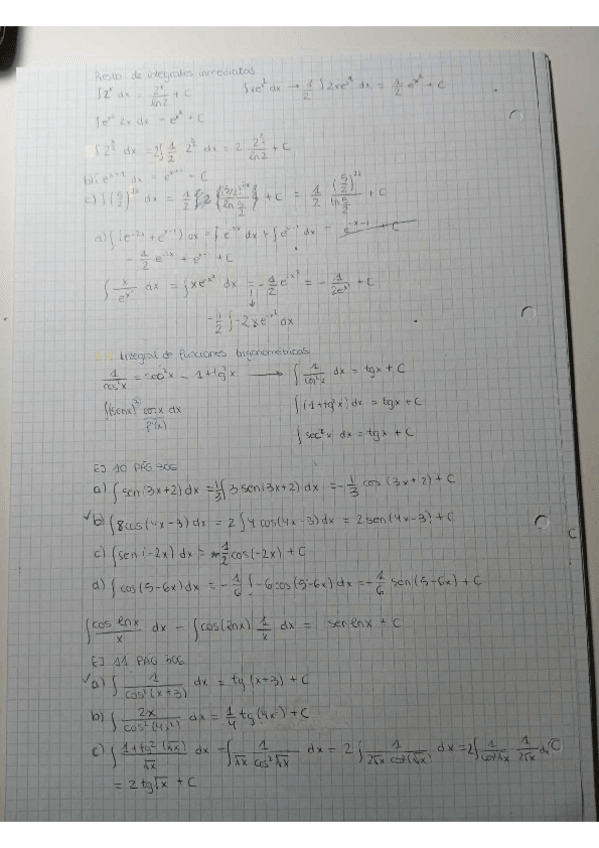 Resto de integrales inmediatas
∫2ˣ dx = 2ˣ/ln2 + C    ∫xe^(x²) dx → 1/2 ∫2xe^(x²) dx = 1/2 e^(x²) + C
∫e^(x²) 2x dx = e^(x²) + C
∫2^(x/2) dx = 2∫1/2 2^(x/2) dx = 2 2^(x/2)/ln2 + C
b) ∫e^(x+1) dx = e^(x+1) + C
c) ∫(5/2)^(2x) dx = 1/2 + C = 1/2 (5/2)^(2x)/ln 5/2 + C
d) ∫(e^(-2x) + e^(x-1)) dx = ∫e^(-2x) dx + ∫e^(x-1) dx =
-1/2 e^(-2x) + e^(x-1) + C
∫x/e^(x²) dx = ∫xe^(-x²) dx = -1/2 e^(-x²) = -1/(2e^(x²)) + C
-1/2 ∫-2xe^(-x²) dx
Integral de funciones trigonométricas
1/cos²x = sec²x = 1+tg²x → ∫1/cos²x dx = tgx + C
∫(senx)² cosx dx    ∫(1+tg²x) dx = tgx + C
f'(x)
∫sec²x dx = tgx + C
EJ 10 PÁG 306
a) ∫sen(3x+2) dx = 1/3∫3 sen(3x+2) dx = -1/3 cos(3x+2) + C
✓b) ∫8cos(4x-3) dx = 2∫4cos(4x-3) dx = 2sen(4x-3) + C
c) ∫sen(-2x) dx = 1/2 cos(-2x) + C
d) ∫cos(5-6x) dx = -1/6 ∫-6cos(5-6x) dx = -1/6 sen(5-6x) + C
∫cos lnx/x dx = ∫cos(lnx) 1/x dx = sen lnx + C
EJ 11 PÁG 306
✓a) ∫1/cos²(x+3) dx = tg(x+3) + C
b) ∫2x/cos²(4x²) dx = 1/4 tg(4x²) + C
c) ∫1+tg²(√x)/√x dx = ∫1/(√x cos²√x) dx = 2∫1/(2√x cos²(√x)) dx = 2∫1/cos²√x · 1/2√x dx
= 2tg√x + C